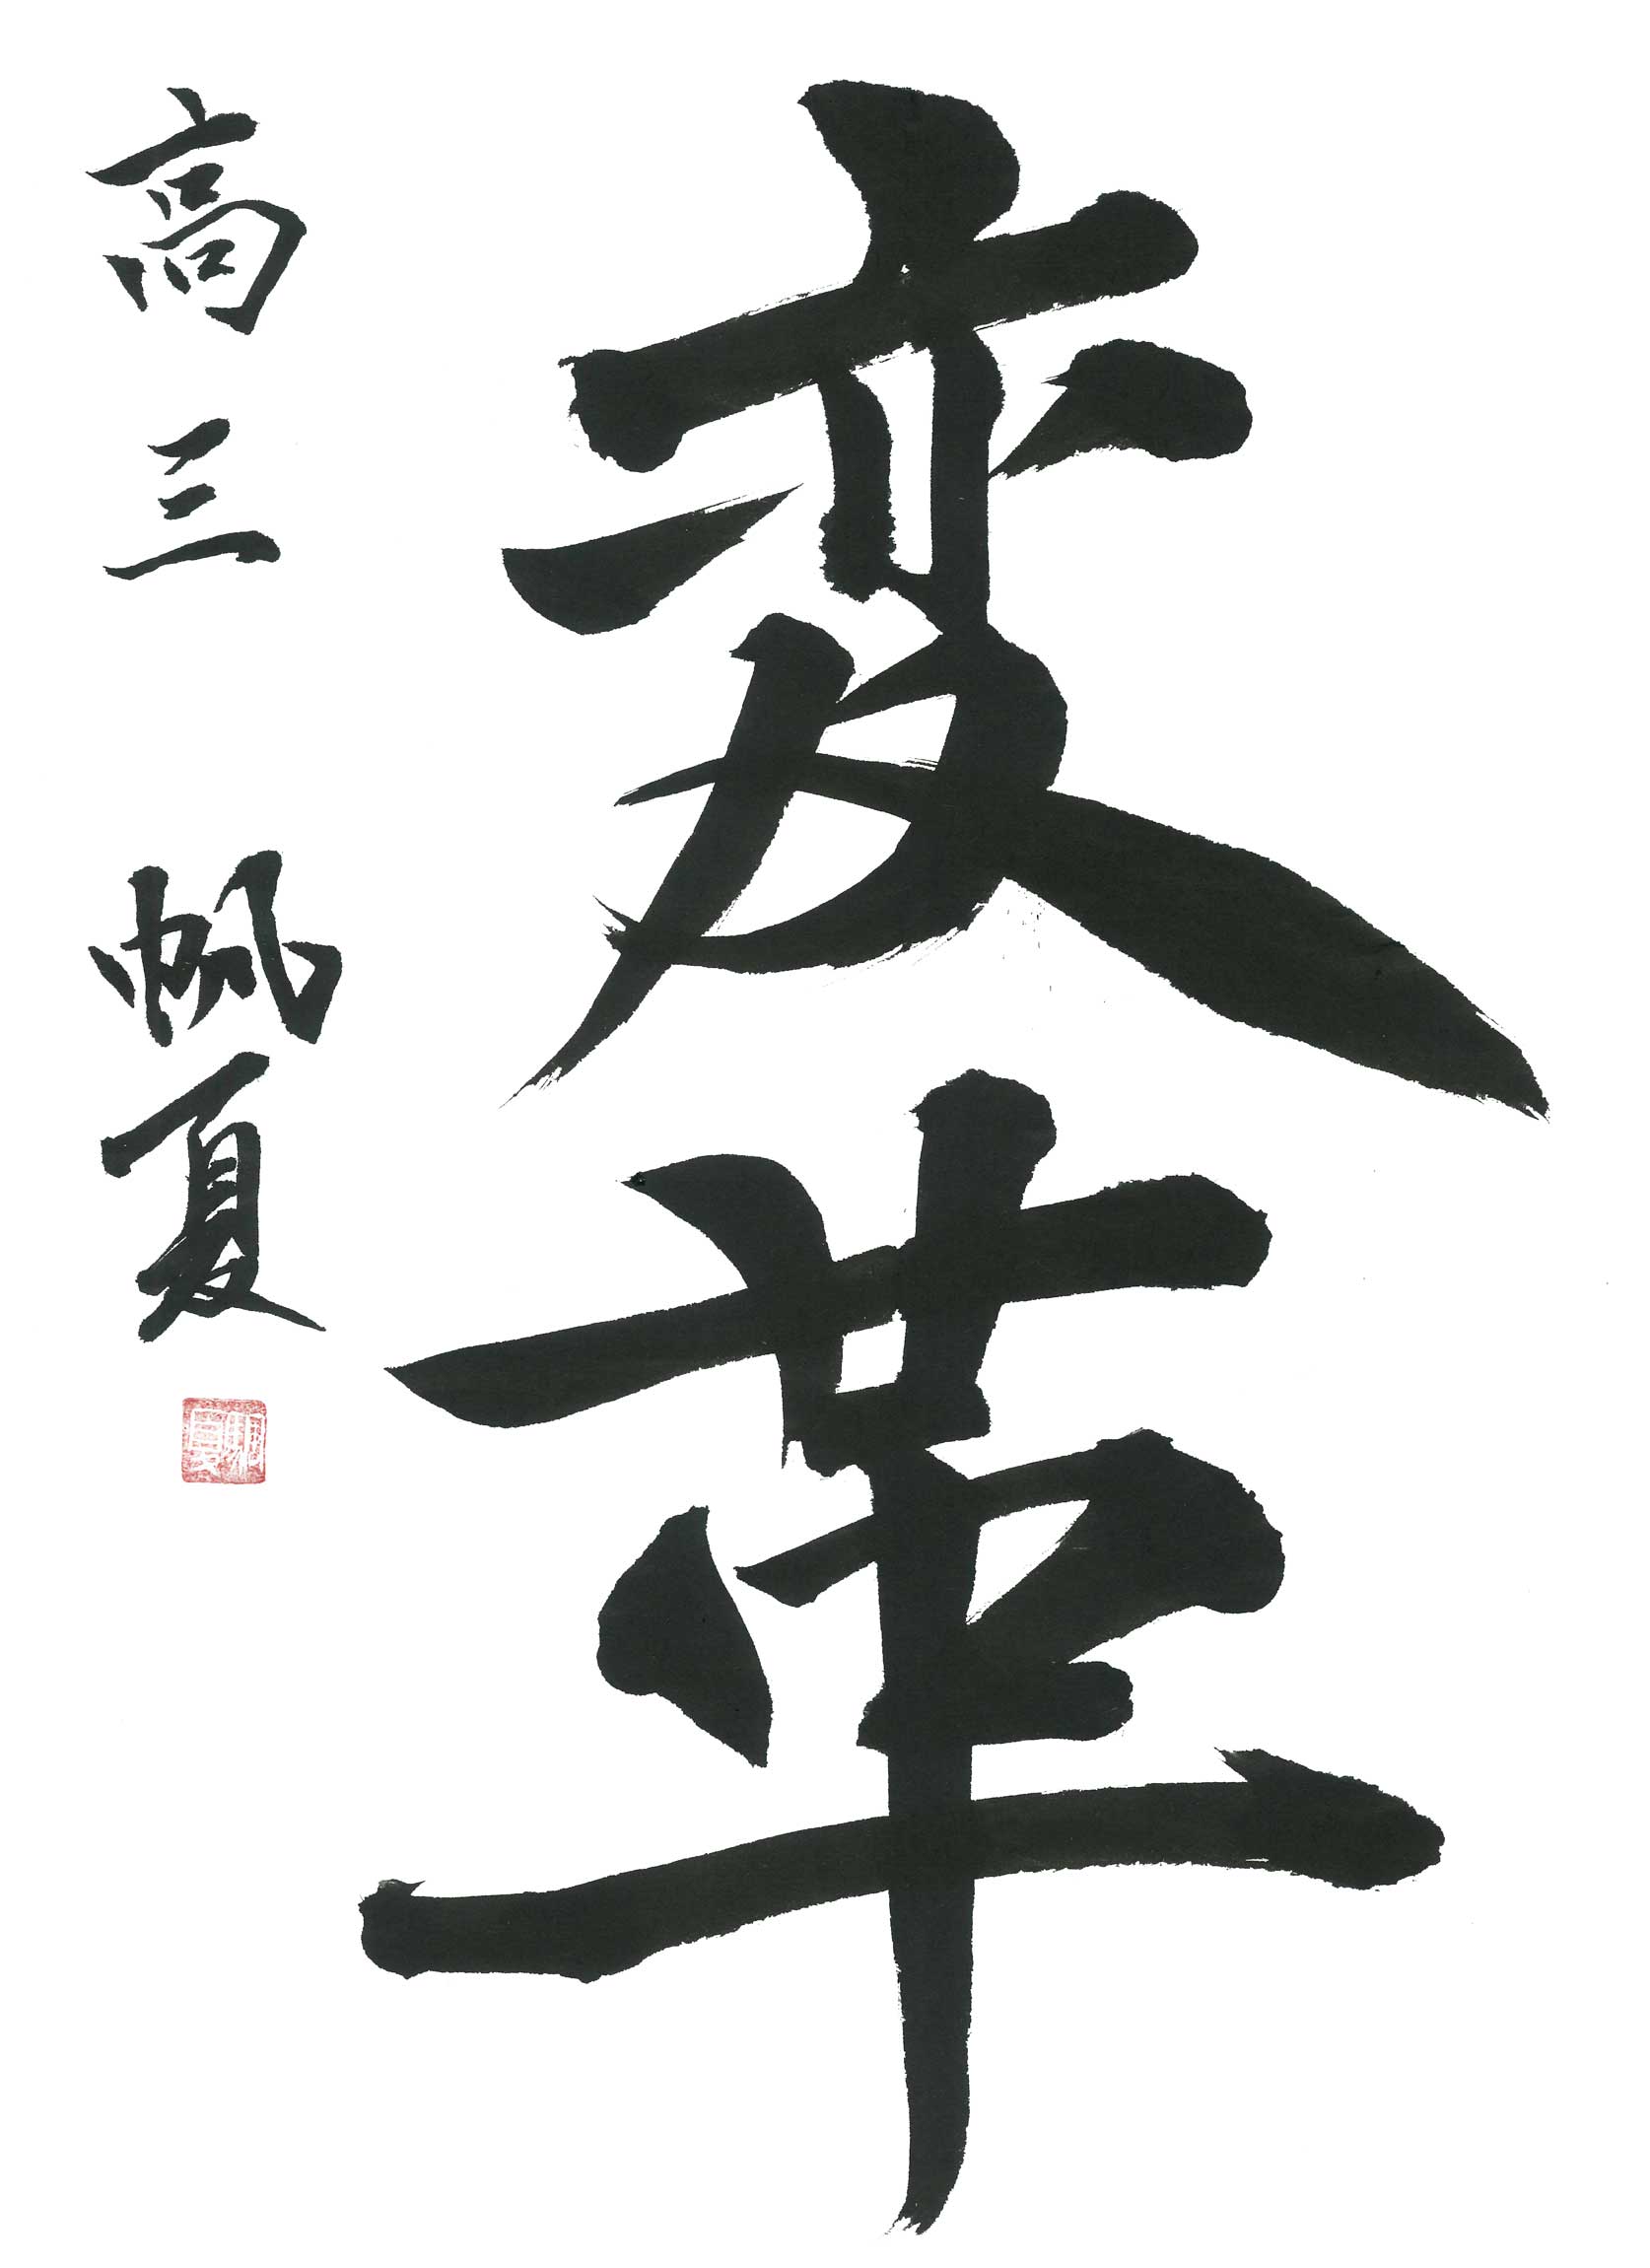 変革
高三 帆夏
帆夏